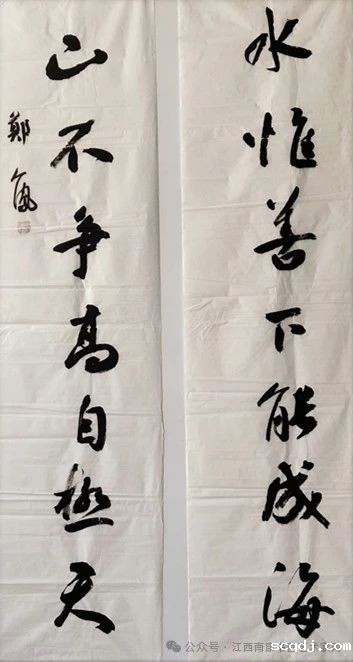 水惟善下能成海
山不争高自极天
鄭
公众号·江西南
scqdj.com